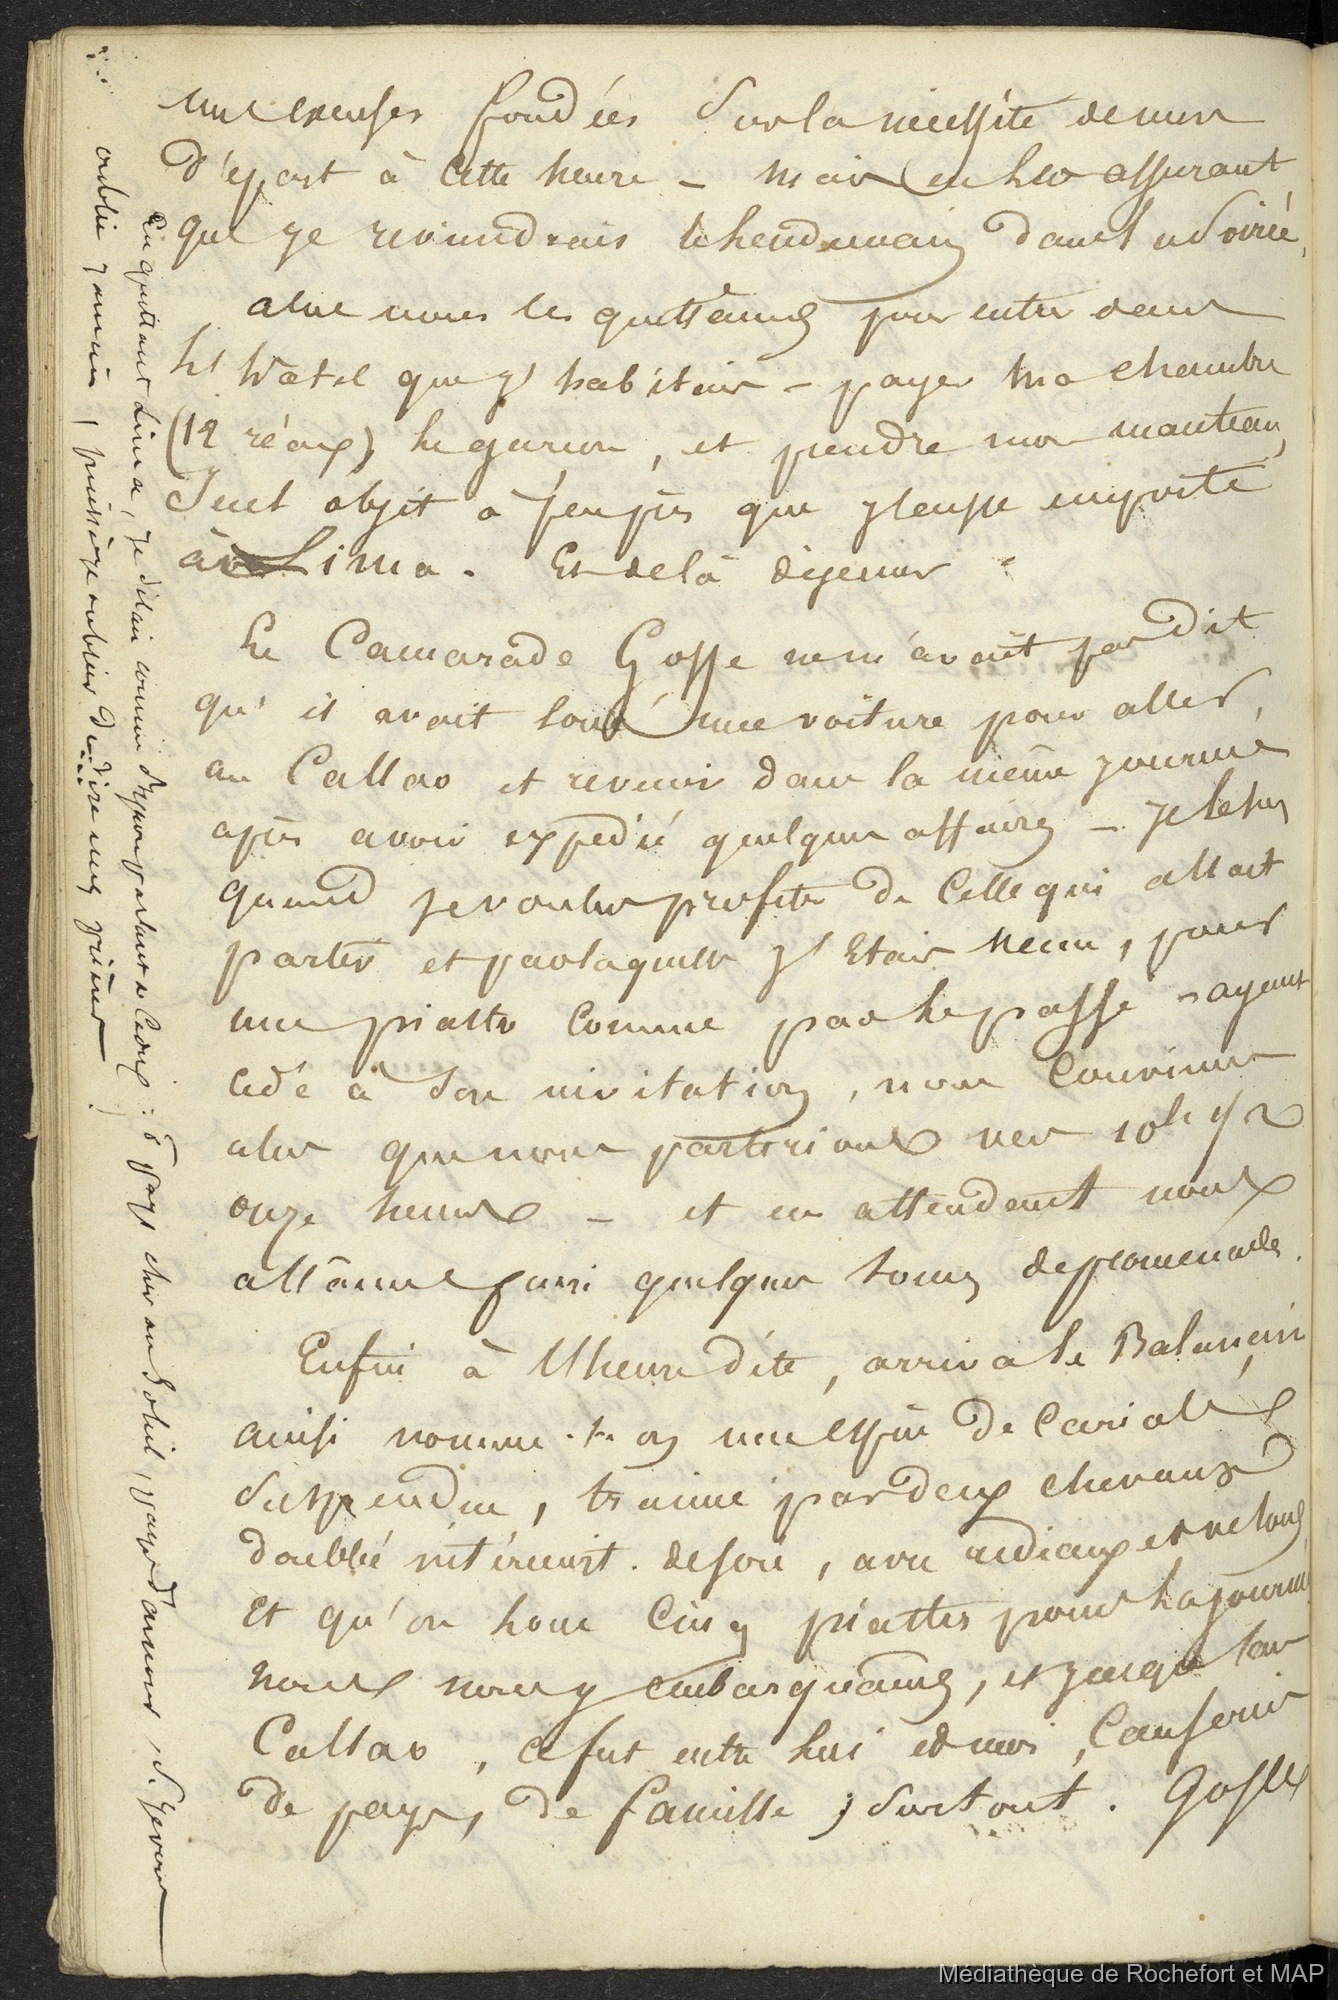 mes excuses fondées sur la nécessité de mon
départ à cette heure – mais en les assurant
que je reviendrais le lendemain dans la soirée,
alors nous les quittâmes pour entrer dans
l'hôtel que j'habitais – payer ma chambre
(12 réaux) le garçon, et prendre mon manteau,
seul objet à peu près que j'eusse emporté
à Lima. Et de là déjeuner
Le Camarade Gosse ne m'avait pas dit
qu'il avait loué une voiture pour aller,
au Callao et revenir dans la même journée
après avoir expédié quelques affaires – je le sus
quand je voulus profiter de celle qui allait
partir et par laquelle j'étais venu, pour
une piastre comme par le passé – ayant
cédé à son invitation, nous convinmes
alors que nous partirions vers 10h 1/2
onze heures – et en attendant nous
allâmes faire quelques tours de promenade.
Enfin à l'heure dite, arriva le Balançin
ainsi nomme-t-on une espèce de cariole
suspendue, trainée par deux chevaux
doublée intérieurt. de soie, avec rideaux et velours
Et qu'on loue cinq piastres pour la journée
nous nous y embarquâmes, et jusqu'au
Callao, ce fut entre lui et moi, causerie
de pays, de famille, surtout. Gosse
En quittant Lima, je disais comme Ypou partant : ô pays cher au soleil, pays d'amour, si je vous
oublie jamais, puissé-je oublier de dire mes prières